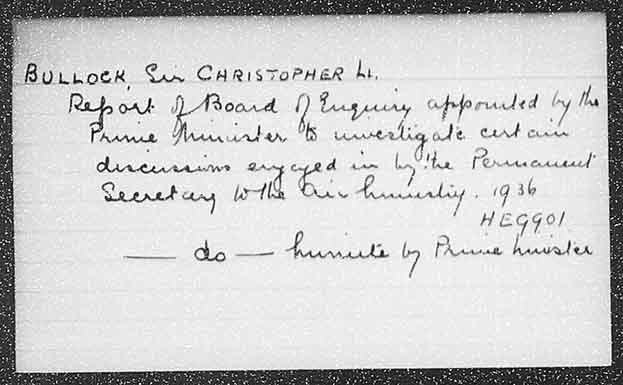 BULLOCK, Sir CHRISTOPHER Ll.
Report of Board of Enquiry appointed by the
Prime Minister to investigate certain
discussions engaged in by the Permanent
Secretary to the Air Ministry. 1936
HEGG01
— do — Minute by Prime Minister